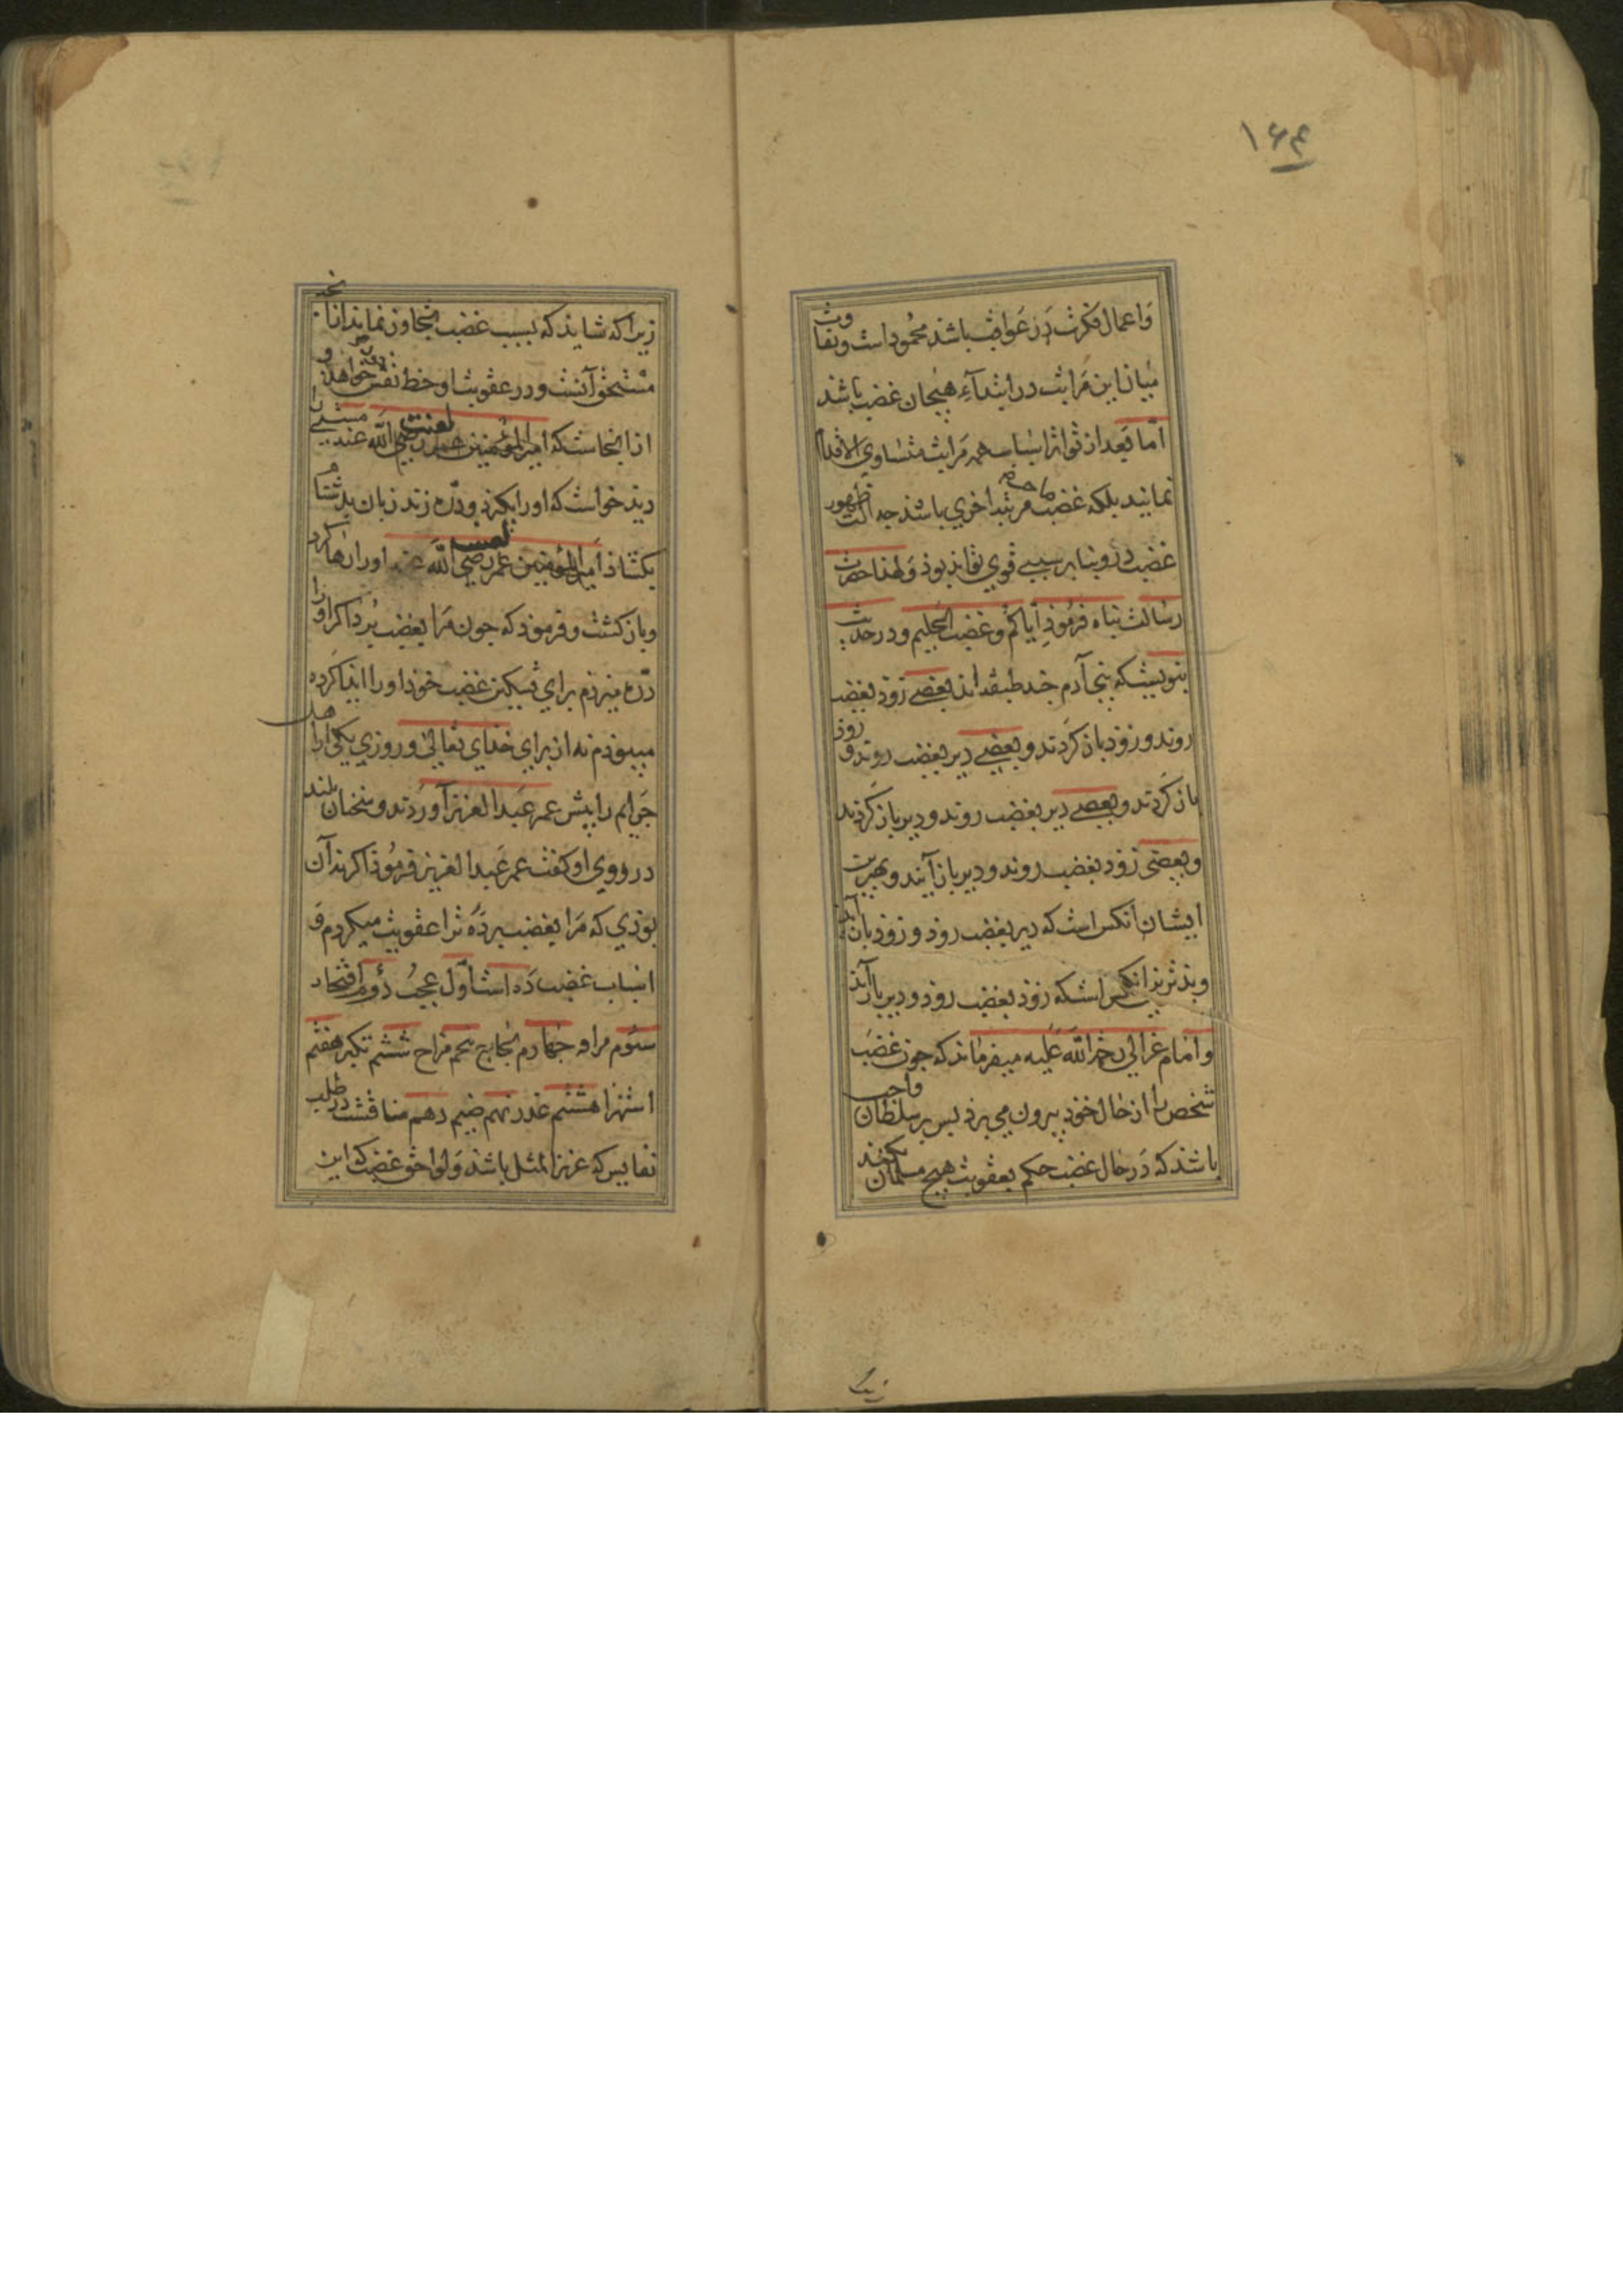 ۱۶۴
واعمال فکرت در عواقب باشد محمود است وتفاوت
میان این مراتب در ابتدآء هیجان غضب باشد
اما بعد از تواتر اسباب همه مراتب متساوی الاقدام
نمانید بلکه غضب مرتبه اخری باشد چه آنکه ظهور
غضب درو بنا بر سببی قوی تواند بوذ ولهذا حضرت
رسالت پناه فرموذ ایاکم وغضب الحلیم ودر حدیث
نبویست که بنی آدم چند طبقه اند بعضی زوذ بغضب
روند و زوذ باز کردند وبعضی دیر بغضب روند و زوذ
باز کردند وبعضی دیر بغضب روند ودیر باز کردند
وبعضی زوذ بغضب روند ودیر باز آیند وبهترین
ایشان آنکس است که دیر بغضب روذ و زوذ باز آید
وبذترین آنکس است که زوذ بغضب روذ ودیر باز آید
وامام غزالی رحمة الله علیه میفرماند که چون غضب
شخص را از حال خوذ بیرون می برذ پس بر سلطان واجب
باشذ که در حال غضب حکم بعقوبت هیچ مسلمان نکند
زیرا
زیرا که شایذ که بسبب غضب تجاوز نمایذ از آنچه
مستحق آنست ودر عقوبت او حظ نفس خواهد و
از اینجاست که امیر المؤمنین عمر رضی الله عنه مستی را
لعنت
دیذ خواست که اورا بکیرذ ودره زند زبان بدشنام
بکشاذ امیر المؤمنین عمر رضی الله عنه اورا رها کرد
وباز کشت وفرموذ که چون مرا بغضب برد اکر اورا
دره میزذم برای تسکین غضب خوذ اورا ایذا کرده
میبوذم نه از برای خدای تعالی وروزی یکی از اهل
جرایم را پیش عمر عبد العزیز آوردند وسخنان بلند
در روی او کفت عمر عبد العزیز فرموذ اکر نه آن
بوذی که مرا بغضب برده ترا عقوبت میکردم و
اسباب غضب ده است اول عجب دوم افتخار
سئوم مرا وه چهارم لجاج پنجم مزاح ششم تکبر هفتم
استهزا هشتم غدر نهم ضیم دهم منافشت در طلب
نفایس که عزیز المثل باشذ ولواحق غضب که این